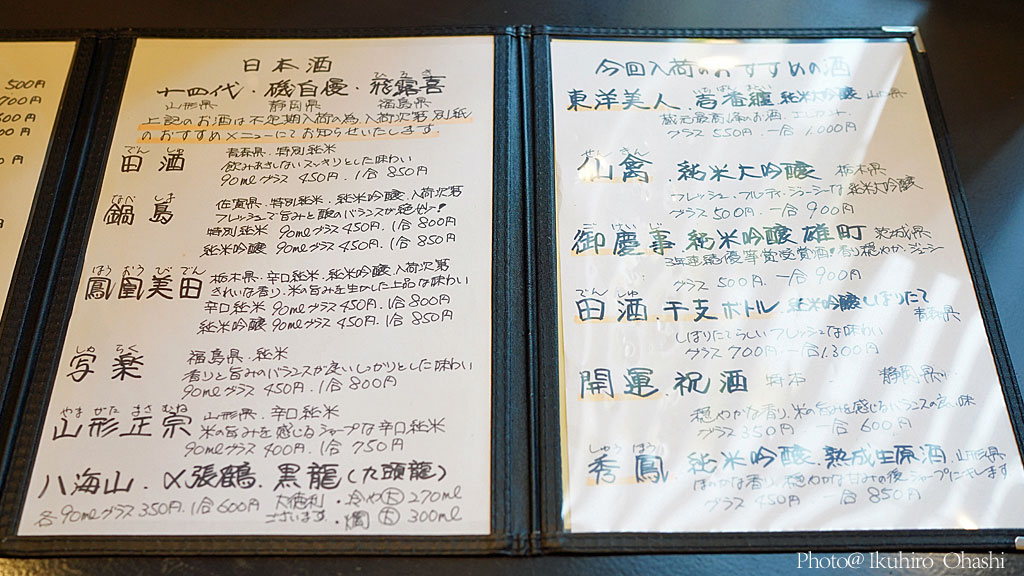 500円
700円
日本酒
十四代・磯自慢・飛露喜
ひろき
山形県 静岡県 福島県
上記のお酒は不定期入荷の為、入荷次第別紙
のおすすめメニューにてお知らせいたします。
でん しゅ
田酒
青森県・特別純米
飲みあきしないスッキリとした味わい
90mlグラス 450円. 1合 850円
なべ しま
鍋島
佐賀県、特別純米・純米吟醸、入荷次第
フレッシュで旨みと酸のバランスが絶妙!
特別純米 90mlグラス 450円. 1合 800円
純米吟醸 90mlグラス 450円. 1合 850円
ほう おう び でん
鳳凰美田
栃木県・辛口純米・純米吟醸 入荷次第
きれいな香り、米の旨みを生かした上品な味わい
辛口純米 90mlグラス 450円. 1合 800円
純米吟醸 90mlグラス 450円. 1合 850円
しゃ らく
写楽
福島県・純米
香りと旨みのバランスが良いしっかりとした味わい
90mlグラス 450円. 1合 800円
やま がた まさ むね
山形正宗
山形県・辛口純米
米の旨みを感じるシャープな辛口純米
90mlグラス 400円. 1合 750円
八海山・〆張鶴・黒龍(九頭龍)
各90mlグラス 350円. 1合 600円
大徳利 ・冷や大 270ml
ございます。・燗大 300ml
今回入荷のおすすめの酒
東洋美人 純米大吟醸 山口県
蔵元最高峰のお酒
グラス 550円 一合 1,000円
せん きん
仙禽 純米大吟醸 栃木県
フレッシュ、フルーティ、ジューシーな純米大吟醸
グラス 500円. 一合 900円
ご けい じ
御慶事 純米吟醸 雄町 茨城県
3年連続優等賞受賞酒! 香り穏やか、ジューシー
グラス 500円 一合 900円
でん しゅ
田酒・干支ボトル 純米吟醸しぼりたて
青森県
しぼりたてらしいフレッシュな味わい
グラス 700円 一合 1,300円
開運・祝酒 特本 静岡県
穏やかな香り、米の旨みを感じるバランスの良い味
グラス 350円 一合 600円
しゅう ほう
秀鳳 純米吟醸、熟成生原酒 山形県
ほのかな香り、穏やかな甘みの後シャープにキレます
グラス 450円 一合 850円
Photo@ Ikuhiro Ohashi